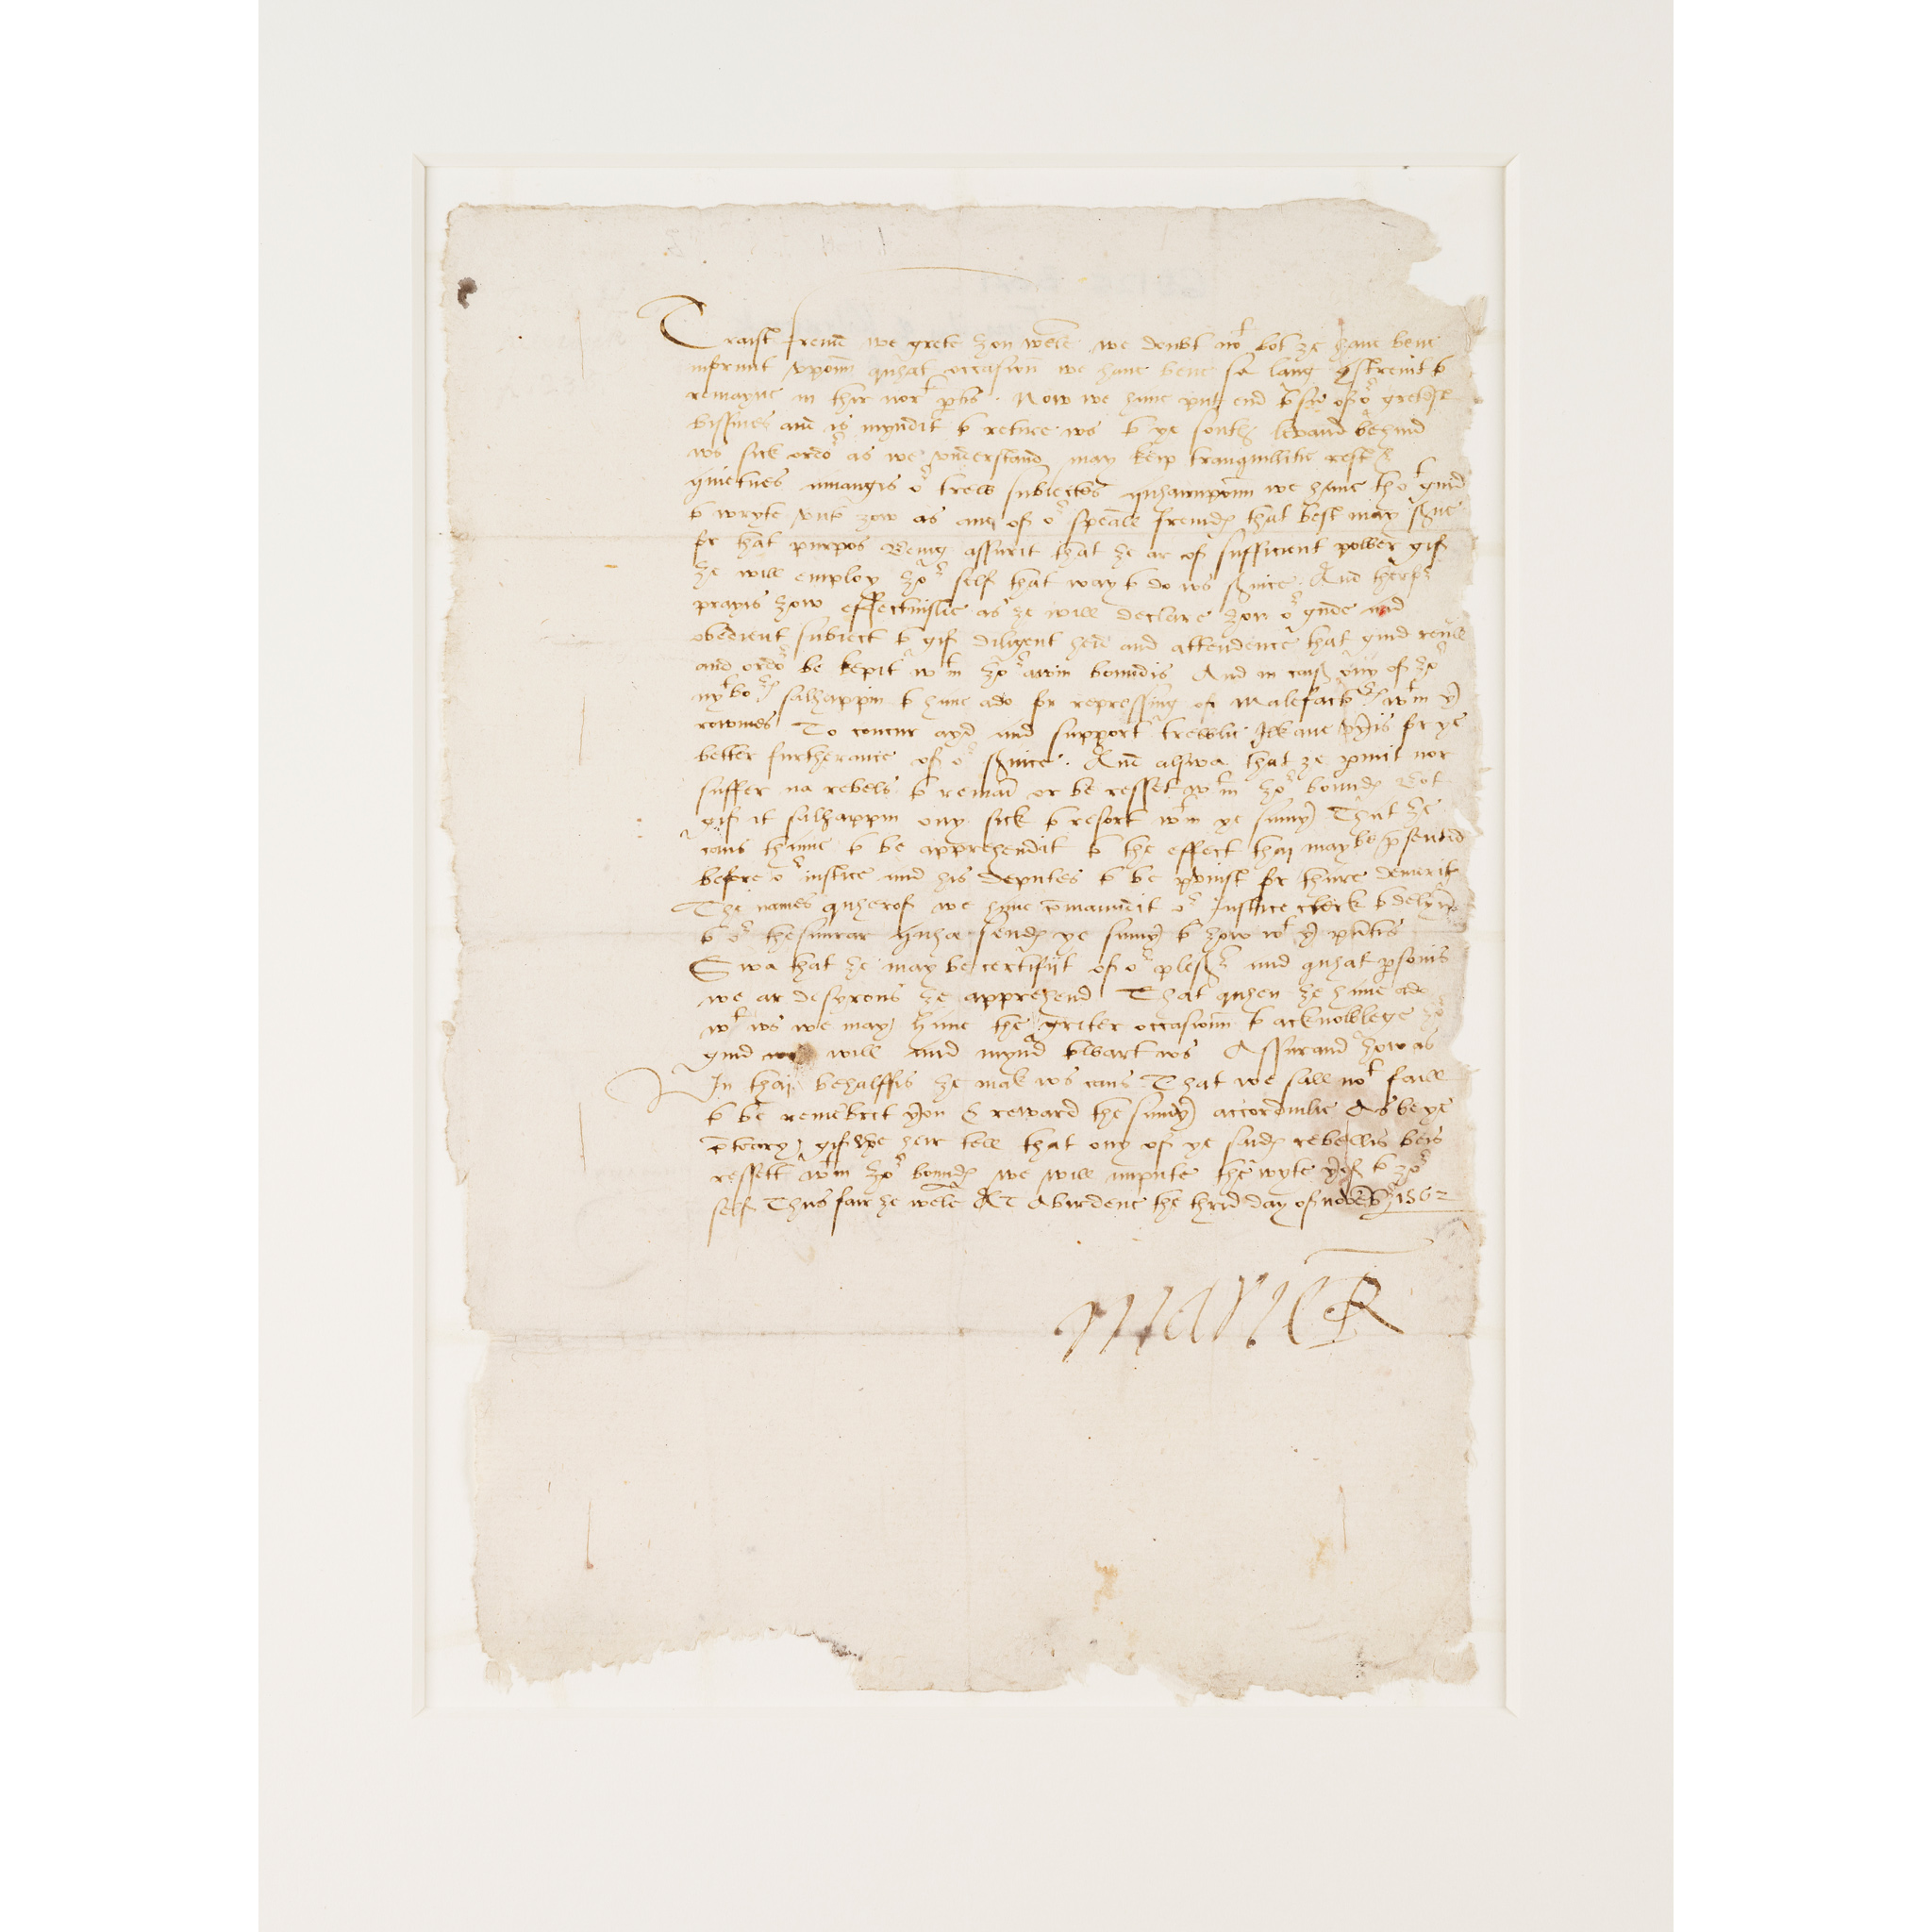 Traist freind we grete ȝou weill we doubt noᵗ bot ȝe haue bene
informit vpoun quhat occasioun we haue bene sa lang constrenit to
remayne in thir norᵗ partis. Now we haue put end to sum of oʳ gretest
bissines and is myndit to returne ws to ye south levand behind
ws sick ordoʳ as we vnderstand may keip tranquillitie rest &
quietnes amangis oʳ trew subiectis quhairupoun we haue thoᵗ guid
to wryte vnto ȝow as ane of oʳ speciall freindis that best may serve
for that purpos Being assurit that ȝe ar of sufficient power gif
ȝe will employ ȝoʳ self that way to do ws seruice. And therfor
prayis ȝow effectuislie as ȝe will declare ȝow oʳ gude and
obedient subiect to gif diligent heid and attendence that guid reull
and ordoʳ be kepit wᵗin ȝoʳ awin boundis And in cais ony of ȝoʳ
nyᵗboʳis salhappin to haue ado for repressing of Malefactoʳis wᵗin yʳ
rowmes To concur ayd and support trewlie ilkane yʳis for ye
better furtherance of oʳ seruice. And alswa that ȝe permit nor
suffer na rebels to remain or be resset wᵗin ȝoʳ boundis Bot
gif it salhappin ony sick to resort wᵗin ye samyn That ȝe
caus thame to be apprehendit to the effect thai may be presentid
before oʳ iustice and his deputes to be puneist for thare demeritis
The names quherof we haue commandit oʳ Justice clerk to delyver
to oʳ thesaurar quha sendis ye samyn to ȝow wᵗ yʳ presentis
Swa that ȝe may be certifyit of oʳ plesʳ and quhat personis
we ar desyrous ȝe apprehend That quhen ȝe haue ado
wᵗ ws we may haue the griter occasioun to acknowlege ȝoʳ
guid will and mynd towart ws Assurand ȝow as
In thai behalffis ȝe mak ws caus That we sall noᵗ faill
to be remembrit yʳon & reward the samyn accordinlie As be ye
contrary gif we heir tell that ony of ye saidis rebellis beis
ressett wᵗin ȝoʳ boundis we will impute the wyte yʳof to ȝoʳ
self Thus fair ȝe weill At Abirdene the thrid day of november 1562
MARIE R